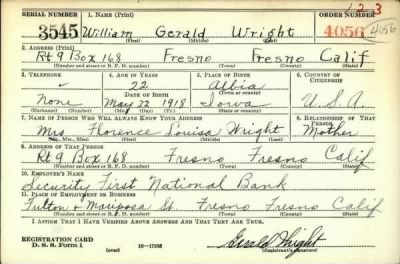 1 2 3
SERIAL NUMBER 1. NAME (Print) ORDER NUMBER
3545 William Gerald Wright 4056 4056
(First) (Middle) (Last)
2. ADDRESS (Print)
Rt 9 Box 168 Fresno Fresno Calif
(Number and street or R. F. D. number) (Town) (County) (State)
3. TELEPHONE 4. AGE IN YEARS 5. PLACE OF BIRTH 6. COUNTRY OF CITIZENSHIP
22 Albia
DATE OF BIRTH (Town or county)
None May 22 1918 Iowa U.S.A.
(Exchange) (No.) (Mo.) (Day) (Yr.) (State or country)
7. NAME OF PERSON WHO WILL ALWAYS KNOW YOUR ADDRESS 8. RELATIONSHIP OF THAT PERSON
Mrs Florence Louisa Wright Mother
(Mr., Mrs., Miss) (First) (Middle) (Last)
9. ADDRESS OF THAT PERSON
Rt 9 Box 168 Fresno Fresno Calif
(Number and street or R. F. D. number) (Town) (County) (State)
10. EMPLOYER'S NAME
Security First National Bank
11. PLACE OF EMPLOYMENT OR BUSINESS
Fulton & Mariposa St. Fresno Fresno Calif
(Number and street or R. F. D. number) (Town) (County) (State)
I AFFIRM THAT I HAVE VERIFIED ABOVE ANSWERS AND THAT THEY ARE TRUE.
REGISTRATION CARD
D. S. S. Form 1 16—17105 Gerald Wright
(Registrant's signature)